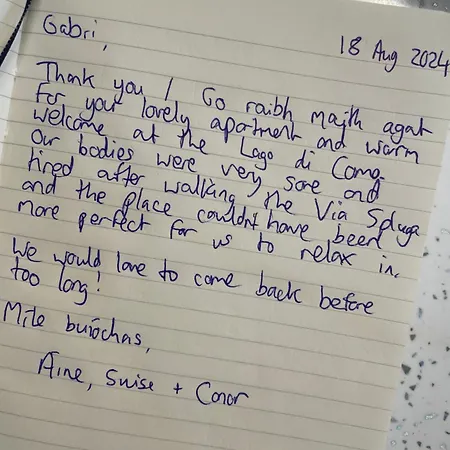 Gabri,
18 Aug 2024
Thank you / Go raibh maith agat
for your lovely apartment and warm
welcome at the Lago di Como.
Our bodies were very sore and
tired after walking the Via Spluga
and the place couldn't have been
more perfect for us to relax in.
We would love to come back before
too long!
Míle buíochas,
Áine, Swise + Conor